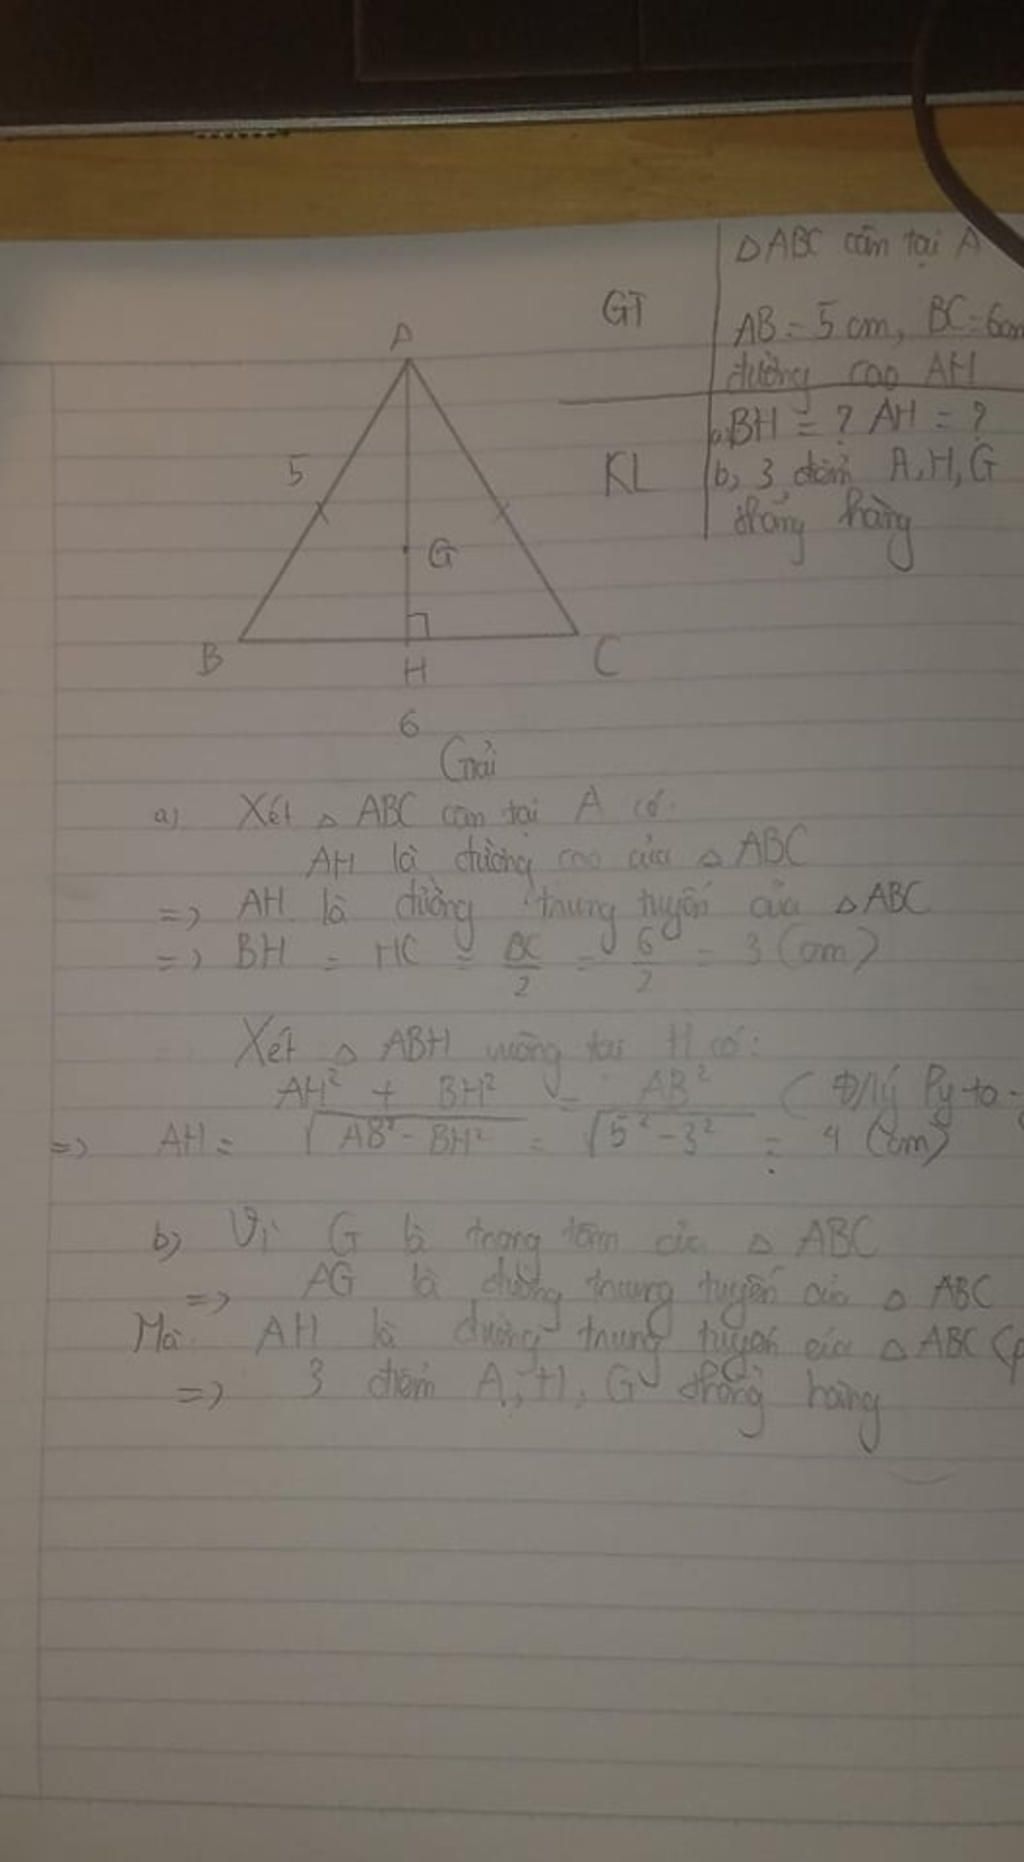 △ABC cân tại A
GT
AB = 5 cm, BC = 6cm
đường cao AH
a, BH = ? AH = ?
KL
b, 3 điểm A, H, G
thẳng hàng
A
5
G
B
H
C
6
Giải
a) Xét △ ABC cân tại A có:
AH là đường cao của △ ABC
=> AH là đường trung tuyến của △ ABC
=> BH = HC = BC/2 = 6/2 = 3 (cm)
Xét △ ABH vuông tại H có:
AH² + BH² = AB² (Đ/lý Py-to-
=> AH = √AB² - BH² = √5² - 3² = 4 (cm)
b) Vì G là trọng tâm của △ ABC
=> AG là đường trung tuyến của △ ABC
Mà AH là đường trung tuyến của △ ABC (
=> 3 điểm A, H, G thẳng hàng